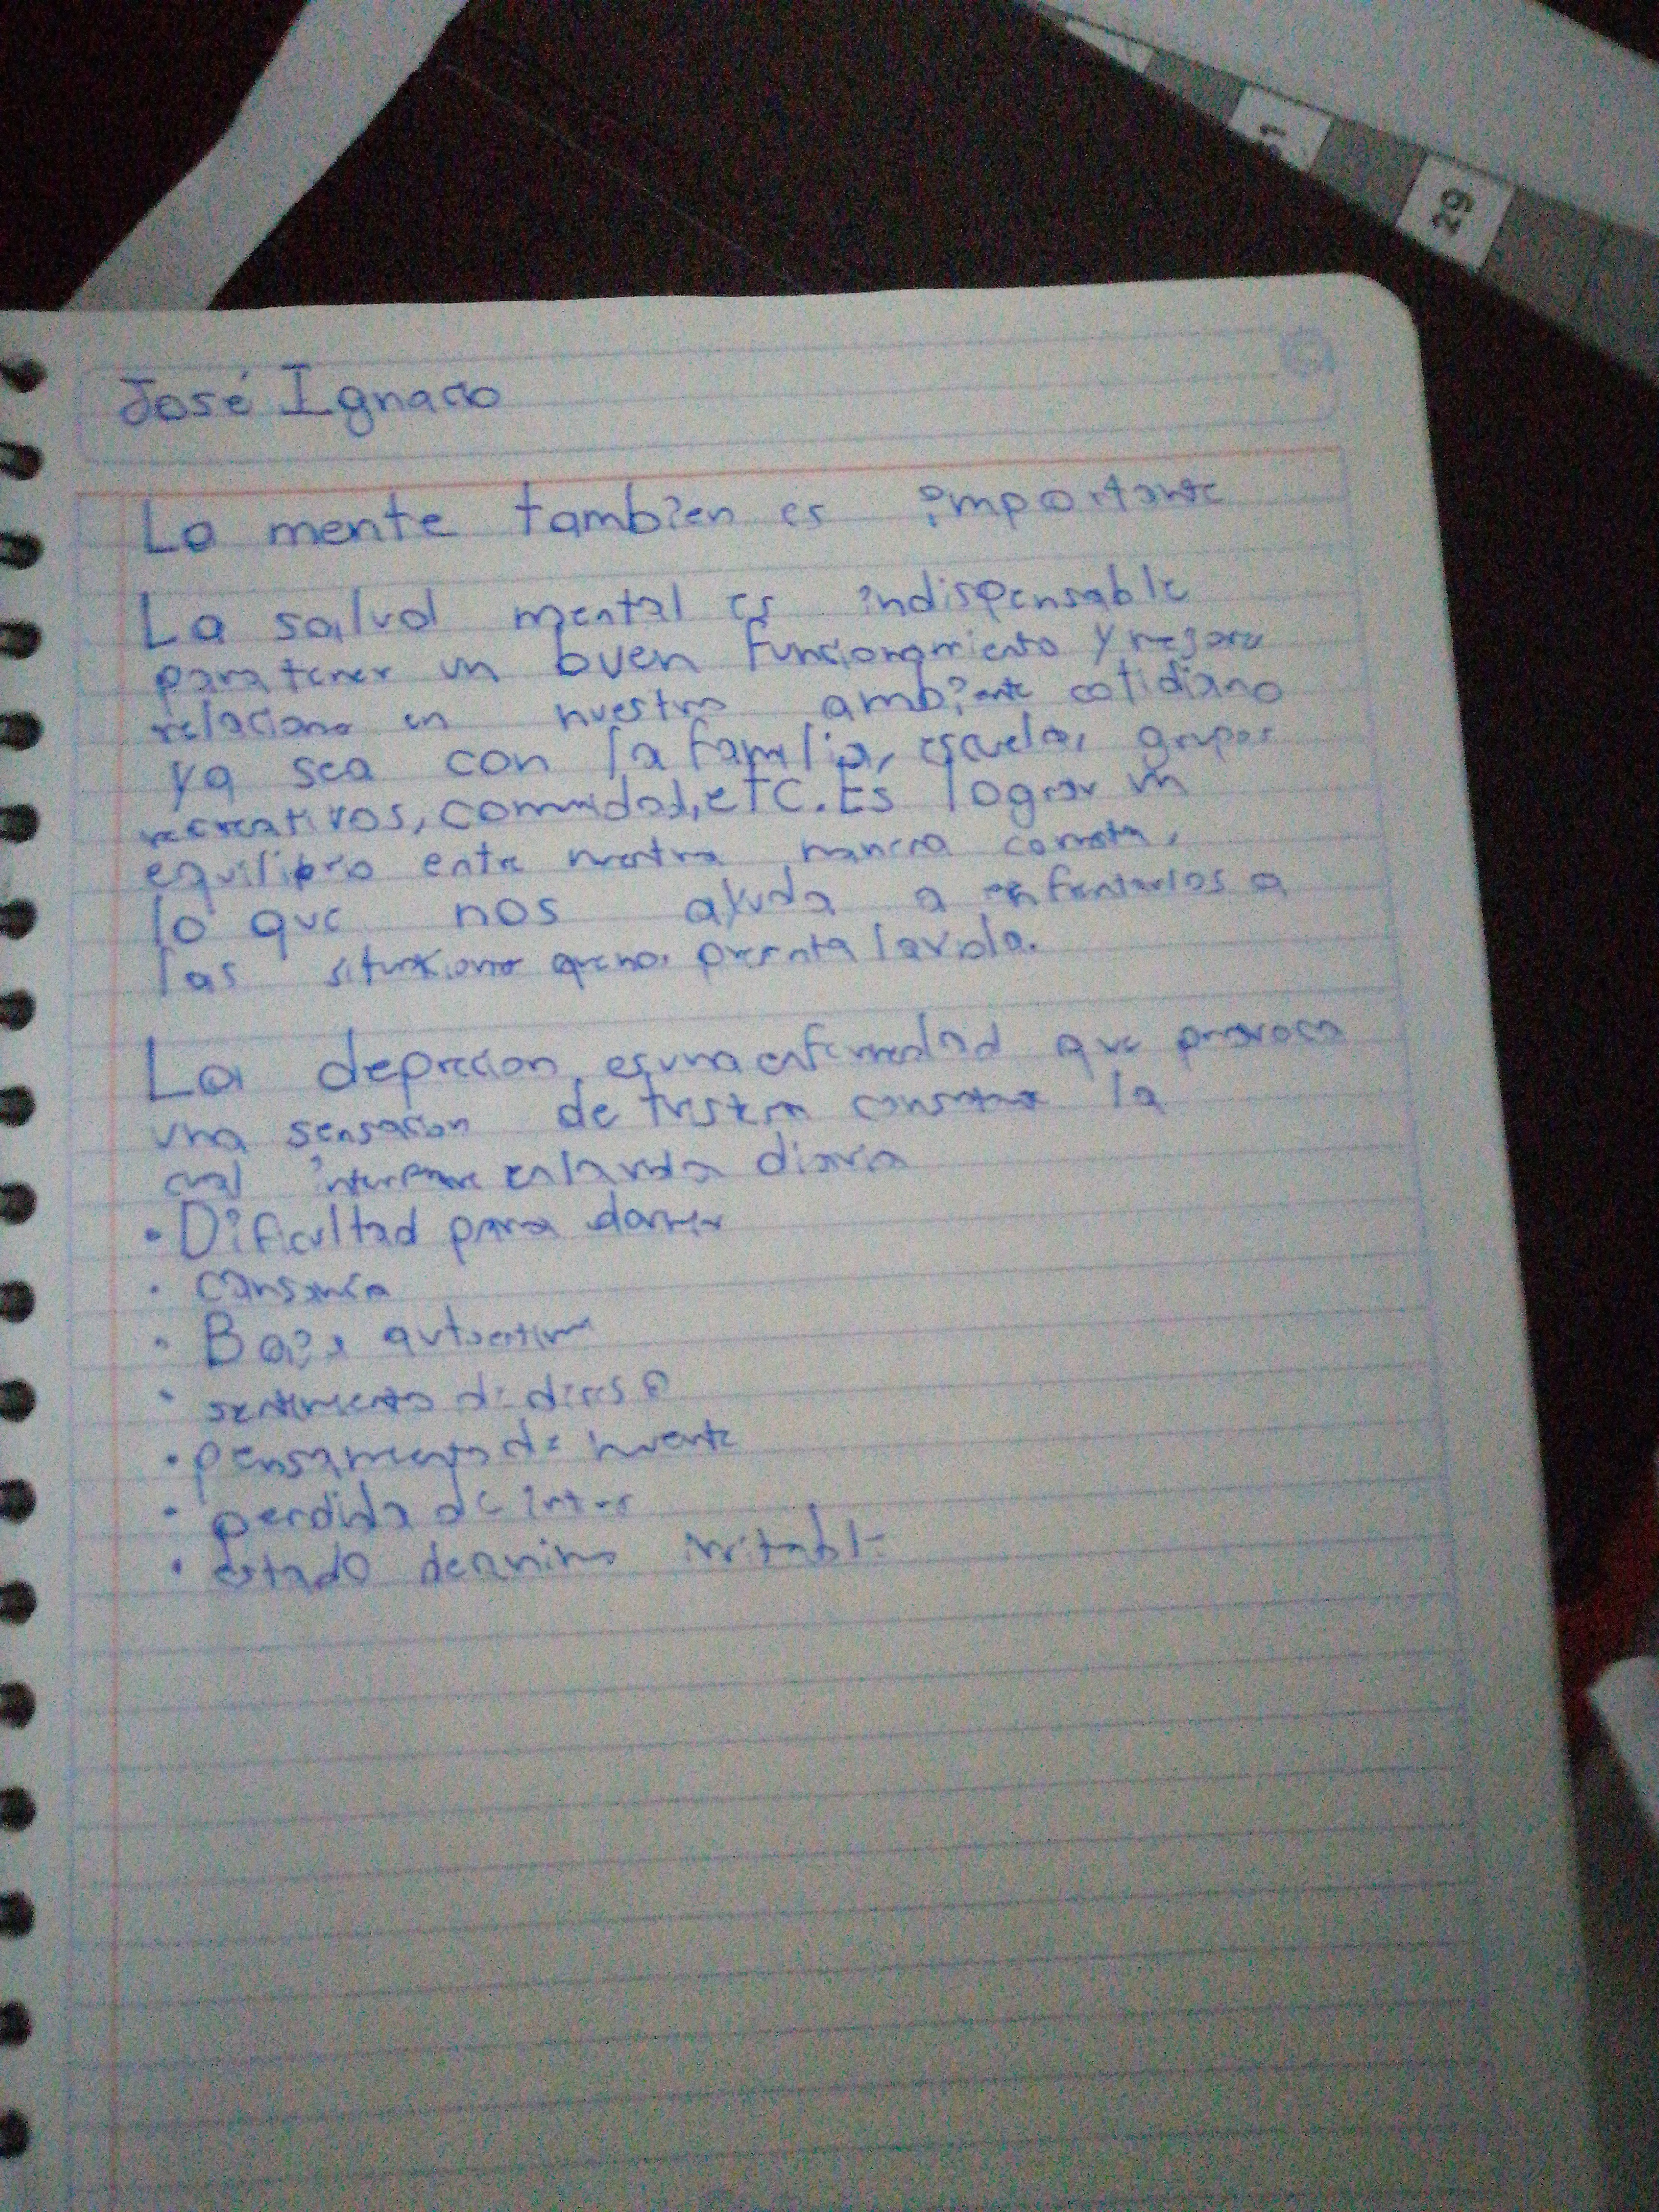 31
29
José Ignacio
La mente tambien es importante
La salud mental es indispensable
para tener un buen funcionamiento y
relaciones en nuestro ambiente cotidiano
ya sea con la familia, escuela, grupos
recreativos, comunidad, etc. Es lograr un
equilibrio entre nuestra manera
lo que nos ayuda a enfrentarlos a
las situaciones que nos presenta la vida.
La deprecion, es una enfermedad que provoca
una sensacion de tristeza constante la
cual interfiere en la vida diaria
• Dificultad para
• cansancio
• Baja autoestima
• sentimiento de
• pensamiento de muerte
• perdida de interes
• estado de animo irritable